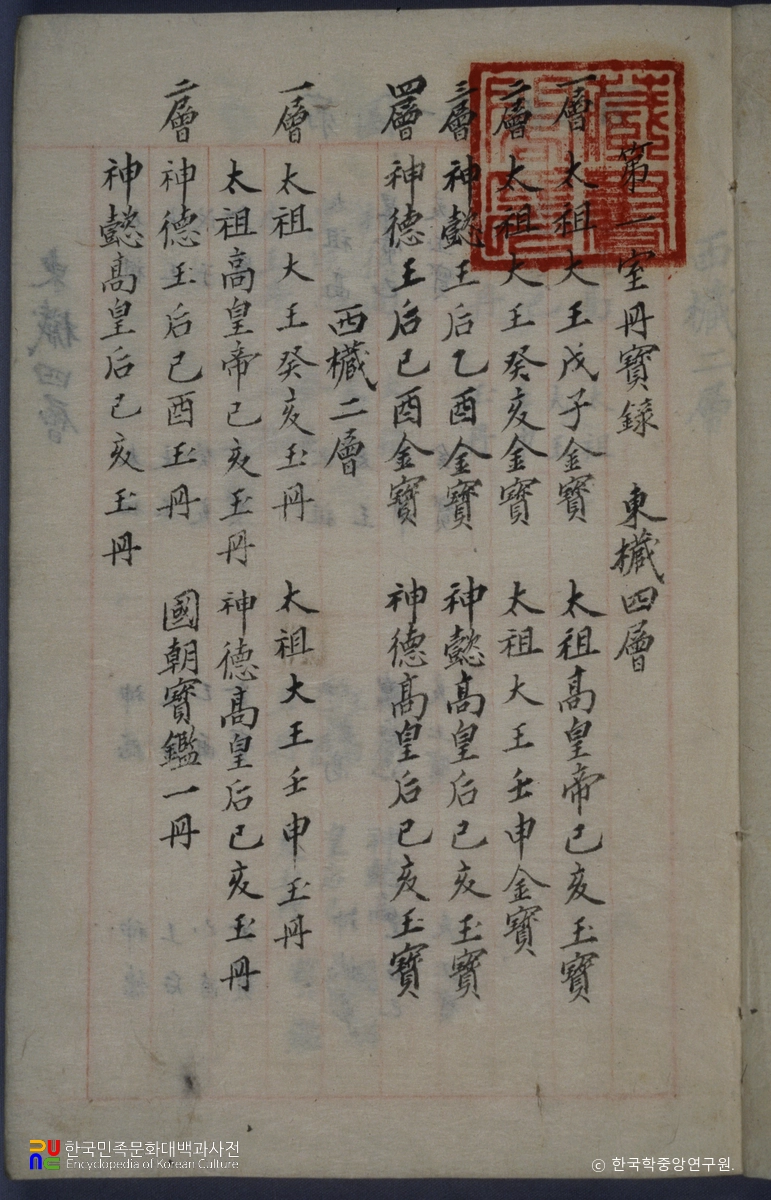 第一室冊寶錄 東欌四層
一層 太祖大王戊子金寶 太祖高皇帝己亥玉寶
二層 太祖大王癸亥金寶 太祖大王壬申金寶
三層 神懿王后乙酉金寶 神懿高皇后己亥玉寶
四層 神德王后己酉金寶 神德高皇后己亥玉寶
西欌二層
一層 太祖大王癸亥玉冊 太祖大王壬申玉冊
太祖高皇帝己亥玉冊 神德高皇后己亥玉冊
二層 神德王后己酉玉冊 國朝寶鑑一冊
神懿高皇后己亥玉冊
東欌四層
西欌二層
한국민족문화대백과사전
Encyclopedia of Korean Culture
© 한국학중앙연구원.